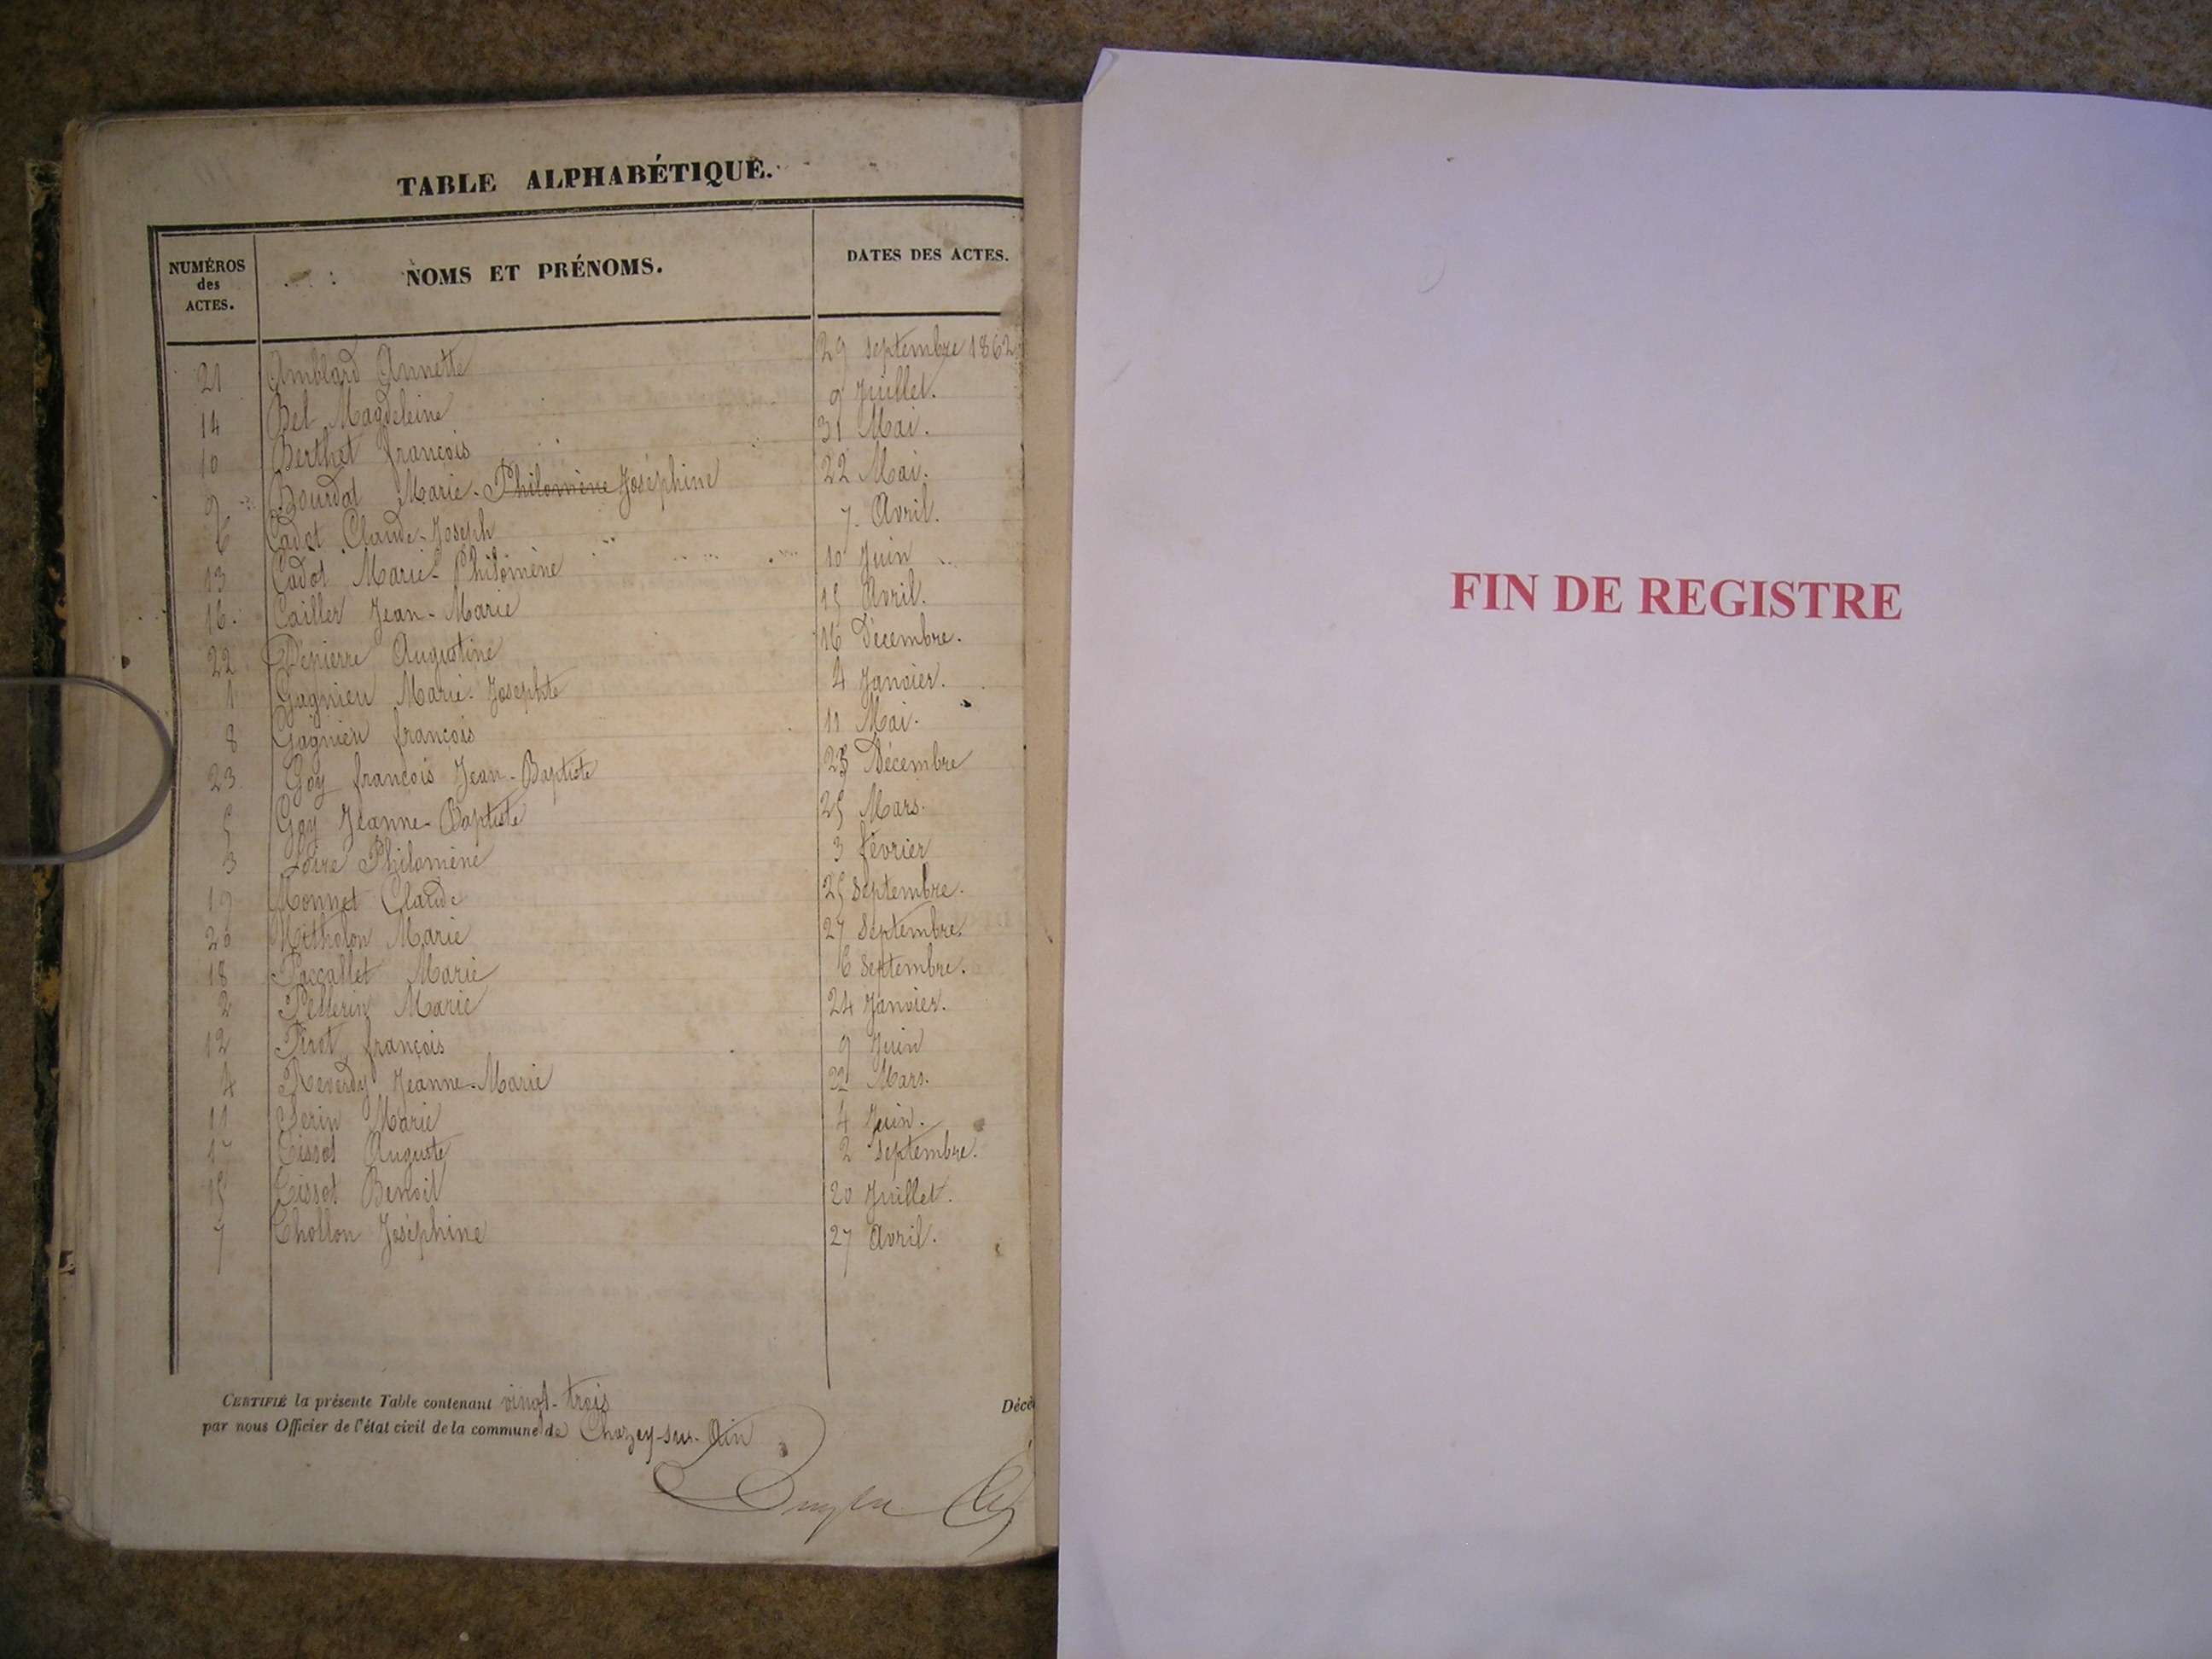 TABLE ALPHABÉTIQUE.
NUMÉROS des ACTES.
NOMS ET PRÉNOMS.
DATES DES ACTES.
21 Amblard Annette 29 septembre 1862
14 Bel Magdeleine 9 Juillet.
10 Berthet françois 31 Mai.
9 Bourdat Marie-Philomène Joséphine 22 Mai.
6 Cadot Claude-Joseph 7 Avril.
13 Cadot Marie-Philomène 10 Juin
16 Cailler Jean-Marie 15 Avril.
22 Dépierre Augustine 16 Décembre.
1 Gagnieu Marie-Josephte 4 Janvier.
8 Gagnieu françois 11 Mai.
23 Goy françois Jean-Baptiste Décembre
5 Goy Jeanne-Baptiste 25 Mars.
3 Loire Philomène 3 février
19 Monnet Claude 25 Septembre.
20 Mitholon Marie 27 Septembre.
18 Paccallet Marie 6 Septembre.
2 Pellerin Marie 24 Janvier.
12 Pirot françois 9 Juin
4 Reverdy Jeanne-Marie 22 Mars.
11 Serin Marie 4 Juin.
17 Tissot Auguste 2 septembre.
15 Tissot Benoit 20 Juillet.
7 Thollon Joséphine 27 Avril.
CERTIFIÉ la présente Table contenant vingt-trois Décè
par nous Officier de l'état civil de la commune de Chazey-sur-Ain
FIN DE REGISTRE